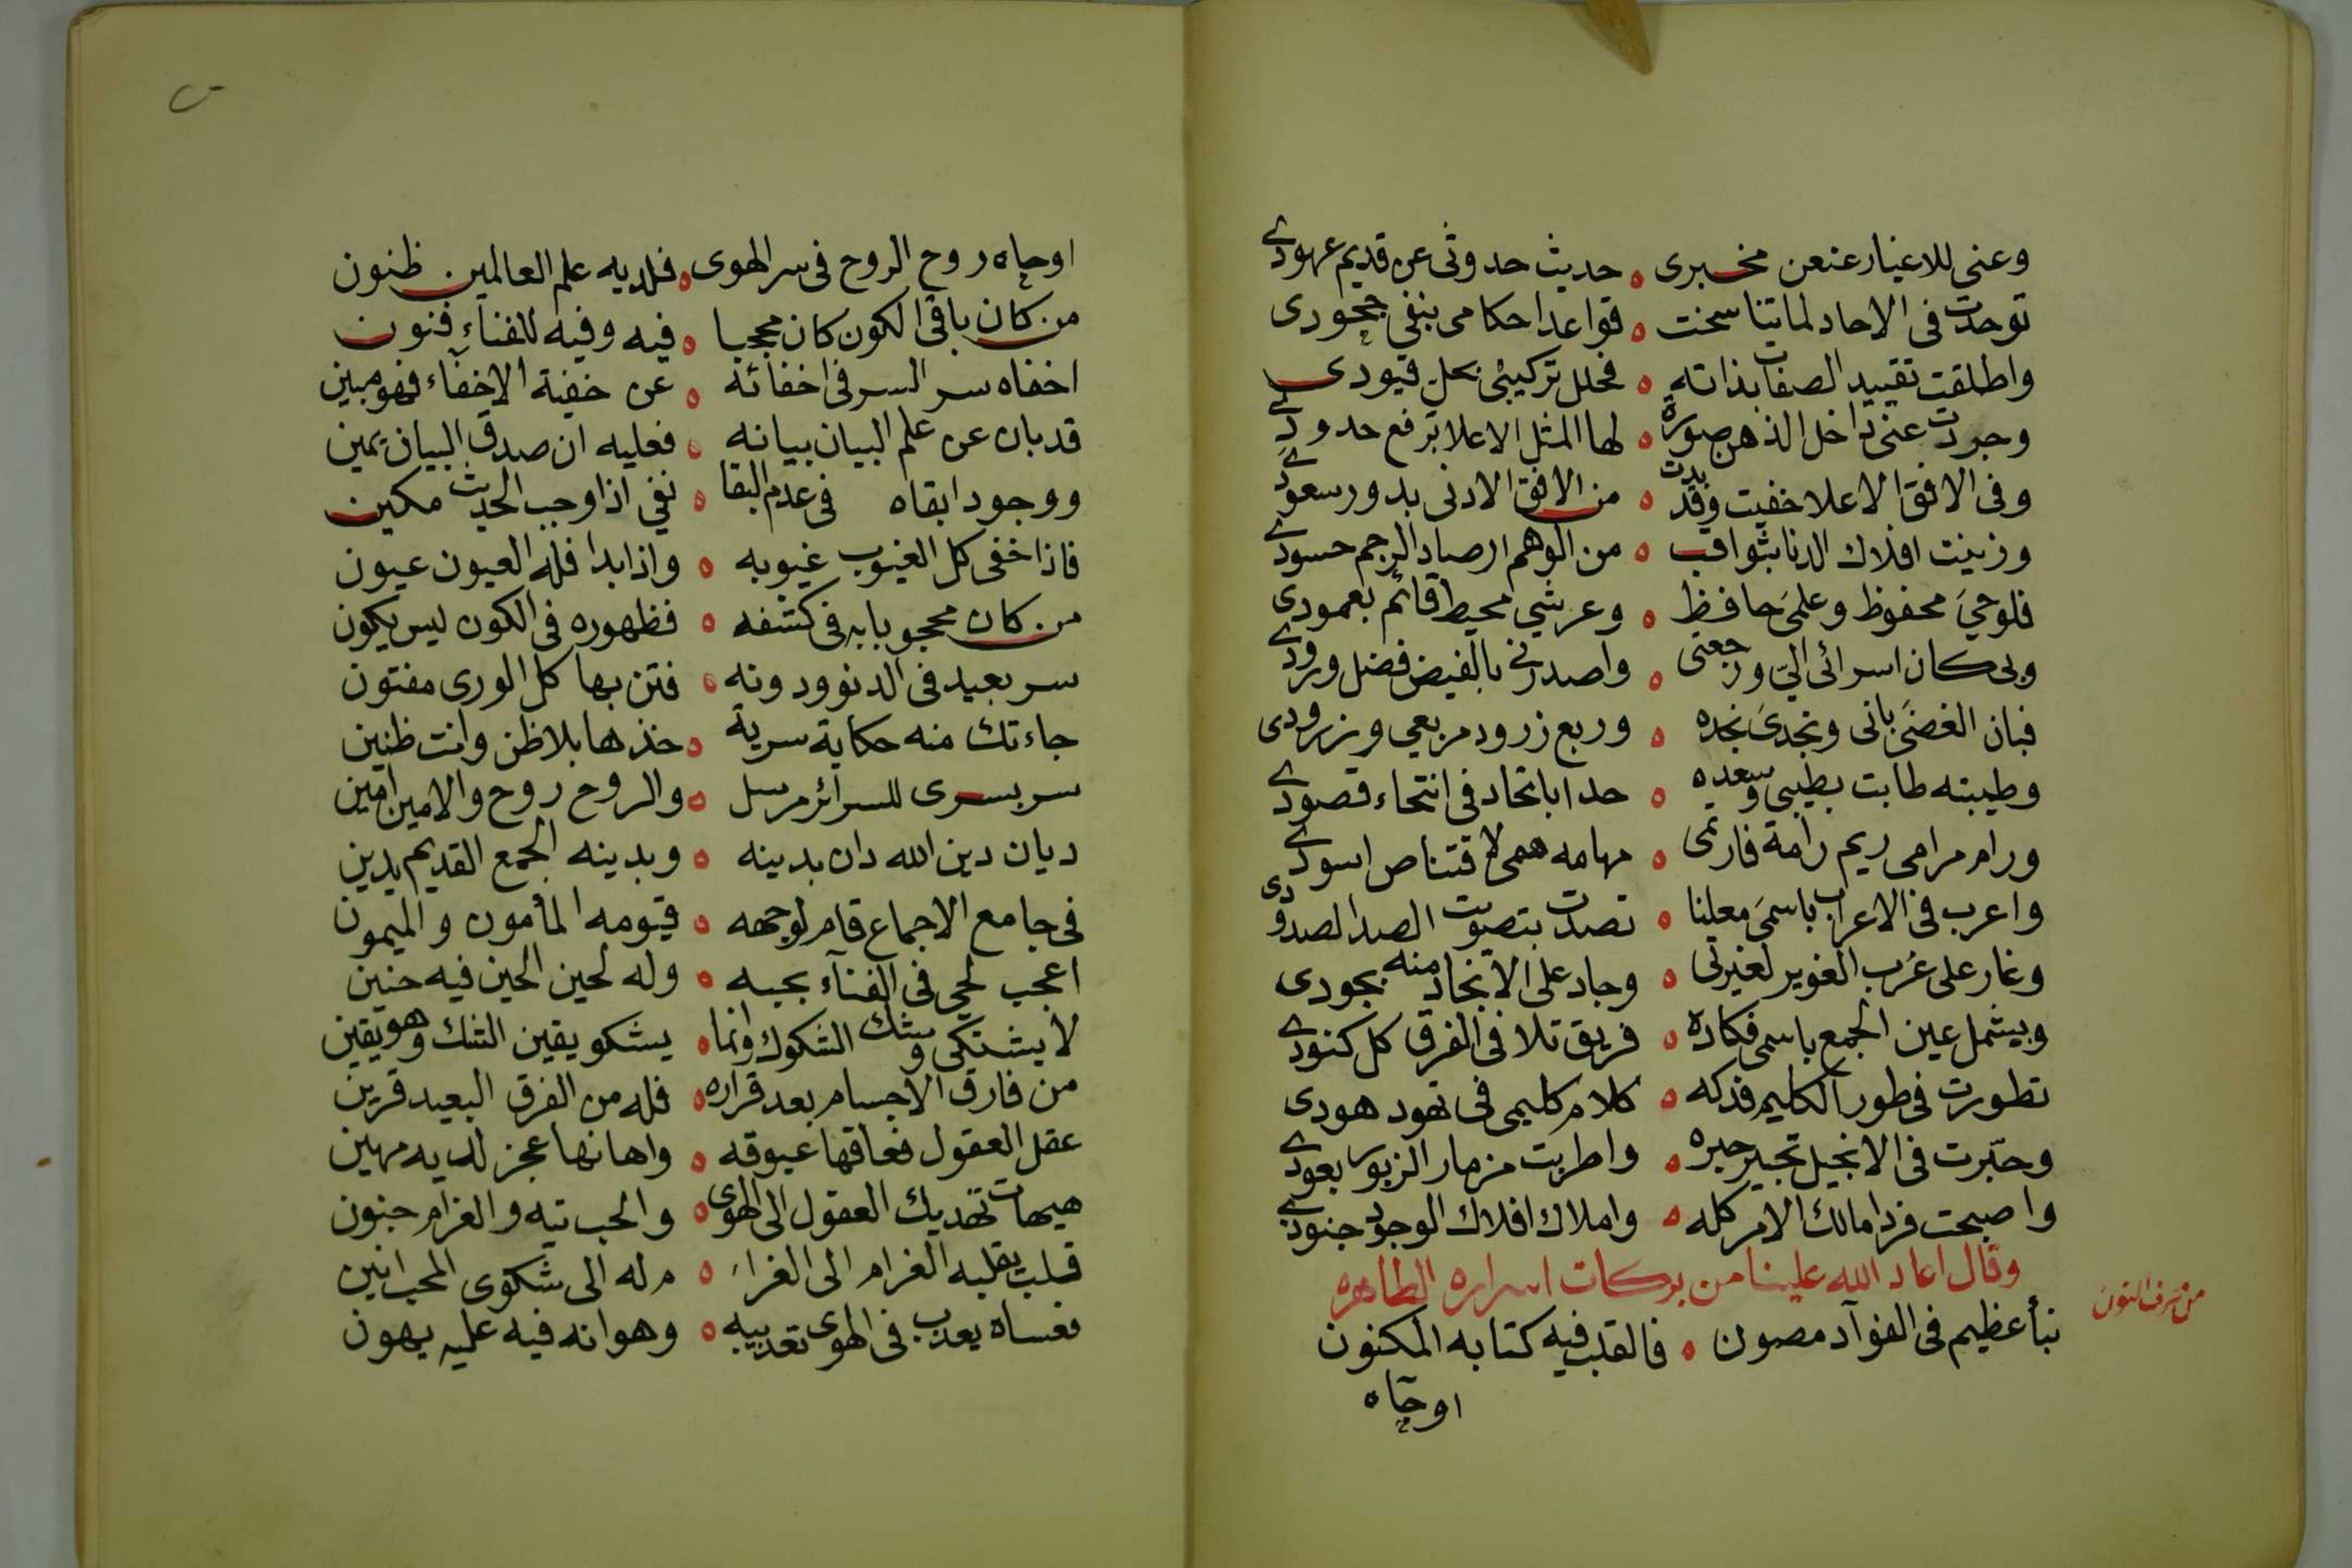 وعنى للاغيار عنعن مخبرى ه حديث حدوثى عن قديم عهودى
توحدت فى الاحاد لما تناسخت ه قواعد احكامى بنفى جحودى
واطلقت تقييد الصفات بذاته ه فحلل تركيبى بحل قيودى
وجردت عنى داخل الذهن صورة ه لها المثل الاعلا برفع حدودى
وفى الافق الاعلا خفيت وقد بدت ه من الافق الادنى بدور سعودى
وزينت افلاك الدنا بثواقب ه من الوهم ارصاد الرجم حسودى
فلوحى محفوظ وعلمى حافظ ه وعرشى محيط قائم بعمودى
وبى كان اسرائى الىّ ورجعتى ه واصدرنى بالفيض فضل ورودى
فبان الغضى بانى ونجدى نجده ه وربع زرود مربعى وزرودى
وطيبته طابت بطيبى وسعده ه حدا باتحاد فى انتحاء قصودى
ورام مرامى ريم رامة فارتمى ه مهامه همى لاقتناص اسودى
واعرب فى الاعراب باسمى معلنا ه تصدت بتصويت الصدا لصدودى
وغار على عُرب الغوير لغيرتى ه وجاد على الانجاد منه بجودى
ويشمل عين الجمع باسمى فكاده ه فريق تلا فى الفرق كل كنودى
تطورت فى طور الكليم فدكه ه كلام كليمى فى تهود هودى
وحبّرت فى الانجيل تحبير حبره ه واطربت مزمار الزبور بعودى
واصبحت فردا مالك الامر كله ه واملاك افلاك الوجود جنودى
وقال اعاد الله علينا من بركات اسراره الطاهره
من حرف النون
نبأ عظيم فى الفوآد مصون ه فالقلب فيه كتابه المكنون
اوحاه
اوحاه روح الروح فى سر الهوى ه فلديه علم العالمين ظنون
من كان باقى الكون كان محجبا ه فيه وفيه للفناء فنون
اخفاه سر السر فى اخفائه ه عن خفية الاخفآء فهو مبين
قد بان عن علم البيان بيانه ه فعليه ان صدق البيان يمين
ووجود ابقاه فى عدم البقا ه نفى اذا وجب الحديث مكين
فاذا خفى كل الغيوب غيوبه ه واذا بدا فله العيون عيون
من كان محجوبا به فى كشفه ه فظهوره فى الكون ليس يكون
سر بعيد فى الدنو ودونه ه فتن بها كل الورى مفتون
جاءتك منه حكاية سرية ه خذها بلا ظن وانت ظنين
سر بسرى للسرائر مرسل ه والروح روح والامين امين
ديان دين الله دان بدينه ه وبدينه الجمع القديم يدين
فى جامع الاجماع قام لوجهه ه قيومه المأمون والميمون
اعجب لحى فى الفنآء بحبه ه وله لحين الحين فيه حنين
لا يشتكى وشك الشكوك وانما ه يشكو يقين الشك وهو يقين
من فارق الاجسام بعد قراره ه فله من الفرق البعيد قرين
عقل العقول فعاقها عيوقه ه واهانها عجز لديه مهين
هيهات تهديك العقول الى الهوى ه والحب تيه والغرام جنون
قلب يقلبه الغرام الى الغرا ه م له الى شكوى المحب انين
فعساه يعذب فى الهوى تعذيبه ه وهوانه فيه عليه يهون